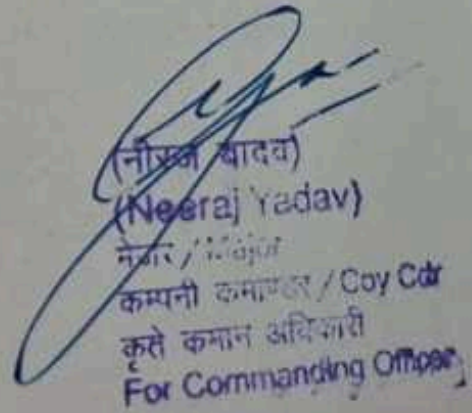 (नीरज यादव)
(Neeraj Yadav)
मेजर / Major
कम्पनी कमाण्डर / Coy Cdr
कृते कमान अधिकारी
For Commanding Officer